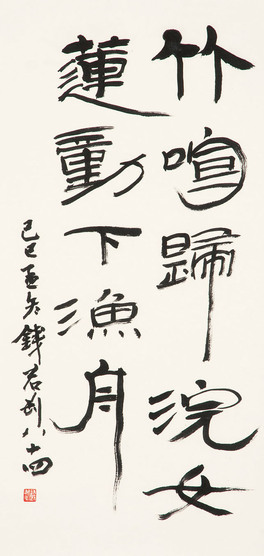 竹喧歸浣女
蓮動下漁舟
己巳錢君匋八十四